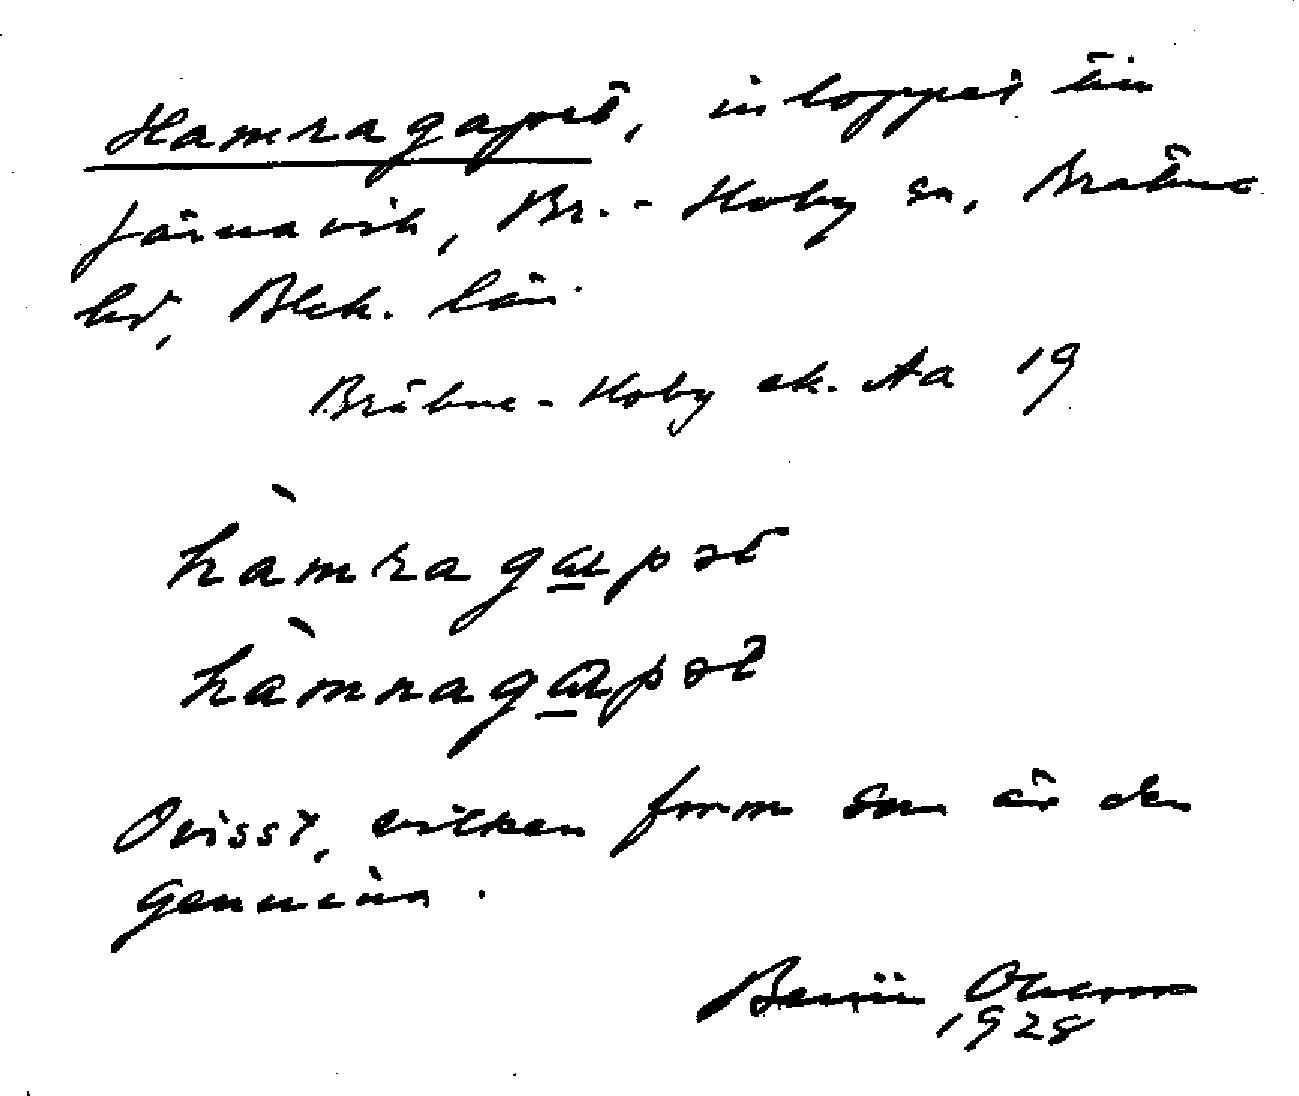 Hamragapet, inloppet till
Järnavik, Br.-Hoby sn, Bräkne
hd, Blek. län.
Bräkne-Hoby ek. Aa 19
hàmragɑpət
hàmnagɑpət
Ovisst, vilken form som är den
genuina.
Bertil Olsson
1928